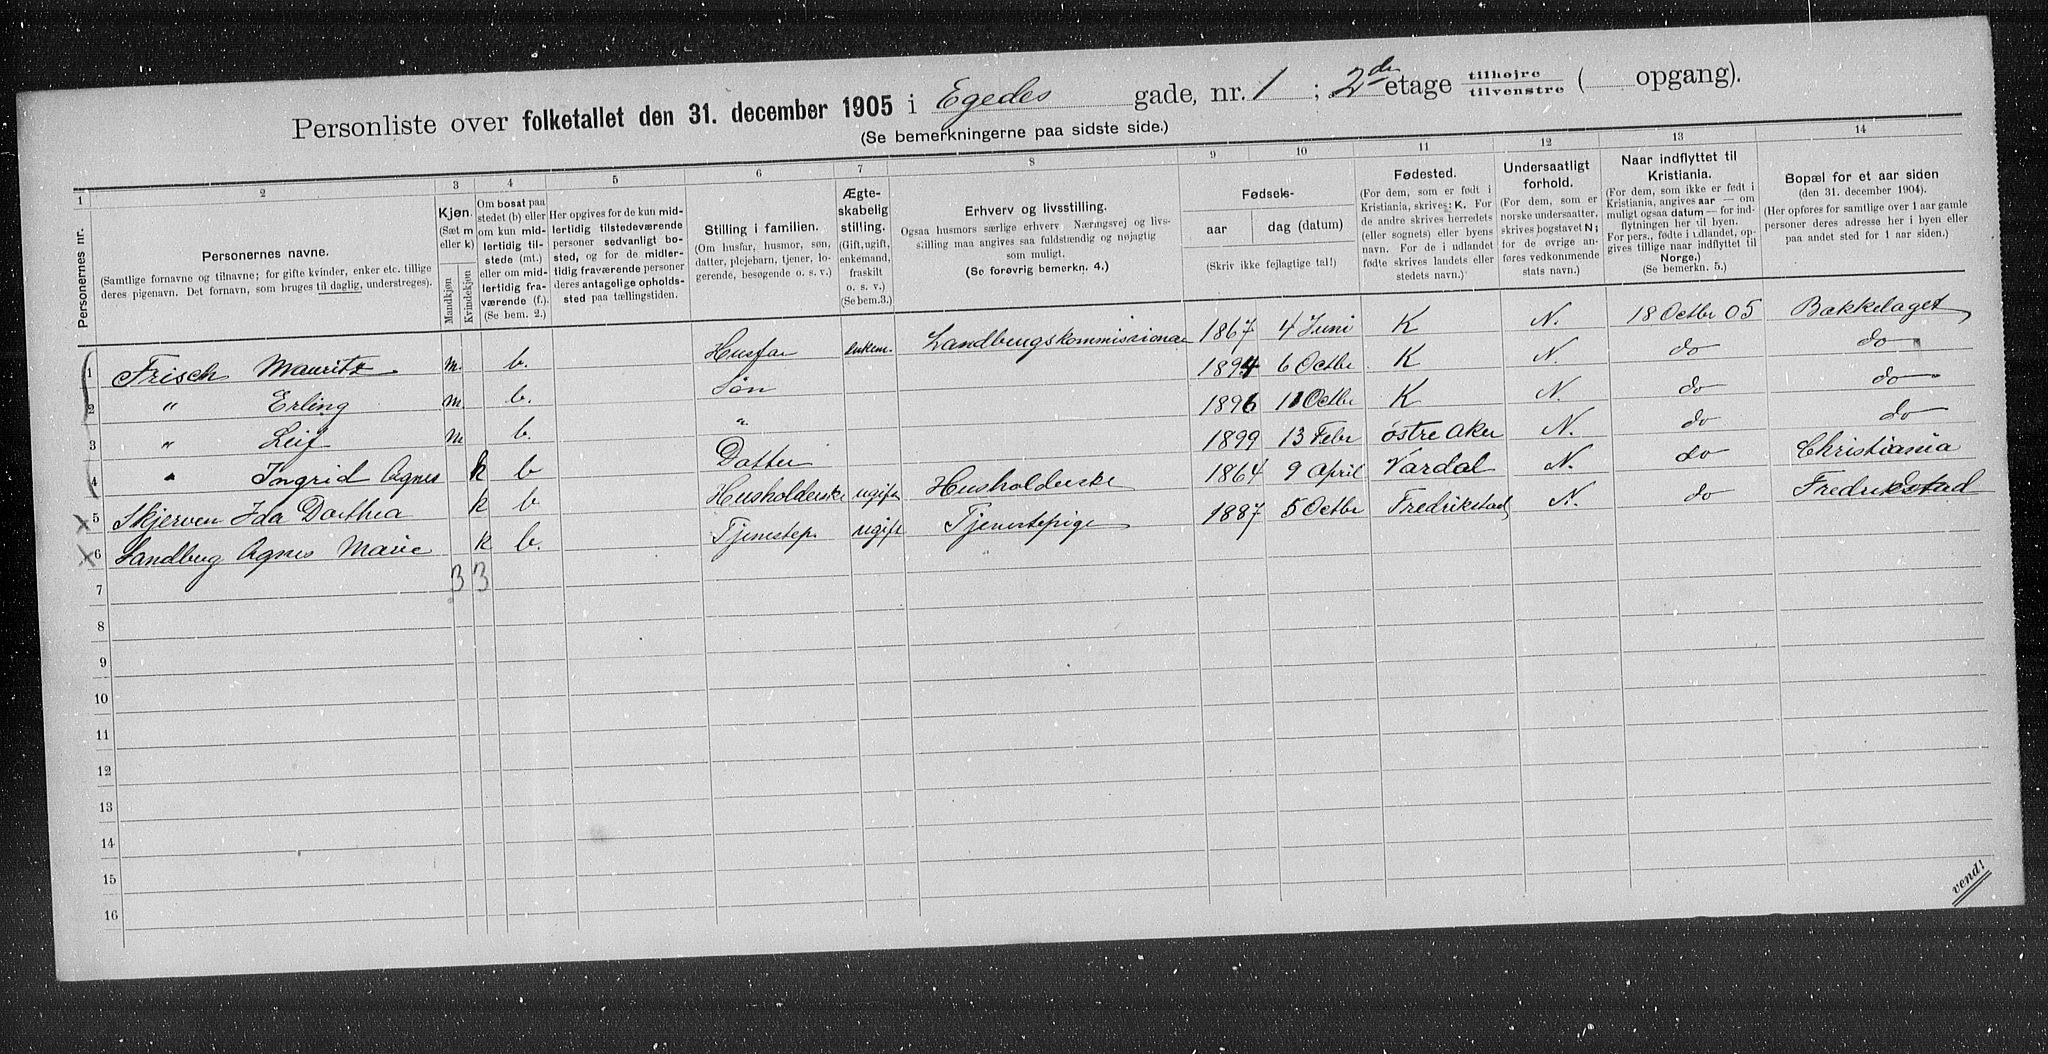 Personliste over folketallet den 31. december 1905 i Egedes gade, nr. 1 ; 2den etage tilhøjre tilvenstre ( opgang).
(Se bemerkningerne paa sidste side.)
1 2 3 4 5 6 7 8 9 10 11 12 13 14
Personernes nr.
Personernes navne.
(Samtlige fornavne og tilnavne; for gifte kvinder, enker etc. tillige
deres pigenavn. Det fornavn, som bruges til daglig, understreges).
Kjøn.
(Sæt m
eller k)
Mandkjøn
Kvindekjøn
Om bosat paa
stedet (b) eller
om kun mid-
lertidig til-
stede (mt.)
eller om mid-
lertidig fra-
værende (f.).
(Se bem. 2.)
Her opgives for de kun mid-
lertidig tilstedeværende
personer sedvanligt bo-
sted, og for de midler-
tidig fraværende personer
deres antagelige opholds-
sted paa tællingstiden.
Stilling i familien.
(Om husfar, husmor, søn,
datter, plejebarn, tjener, lo-
gerende, besøgende o. s. v.)
Ægte-
skabelig
stilling.
(Gift, ugift,
enkemand,
fraskilt
o. s. v.)
(Se bem.3.)
Erhverv og livsstilling.
Ogsaa husmors særlige erhverv. Næringsvej og livs-
stilling maa angives saa fuldstændig og nøjagtig
som muligt.
(Se forøvrig bemerkn. 4.)
Fødsels-
aar
dag (datum)
(Skriv ikke fejlagtige tal!)
Fødested.
(For dem, som er født i
Kristiania, skrives: K. For
de andre skrives herredets
(eller sognets) eller byens
navn. For de i udlandet
fødte skrives landets eller
stedets navn.)
Undersaatligt
forhold.
(For dem, som er
norske undersaatter,
skrives bogstavet N;
for de øvrige an-
føres vedkommende
stats navn.)
Naar indflyttet til
Kristiania.
(For dem, som ikke er født i
Kristiania, angives aar — om
muligt ogsaa datum — for ind-
flytningen her til byen.
For pers., fødte i udlandet, op-
gives tillige naar indflyttet til
Norge.)
(Se bemerkn. 5.)
Bopæl for et aar siden
(den 31. december 1904).
(Her opføres for samtlige over 1 aar gamle
personer deres adresse her i byen eller
paa andet sted for 1 aar siden.)
1 Frisch Mauritz m. b. Husfar enkem. Landbrugskommissionær 1867 4 Juni K N. 18 Octbr 05 Bækkelaget
2 " Erling m. b. Søn 1894 6 Octbr K N. do do
3 " Leif m b. " 1896 11 Octbr K N. do do
4 " Ingrid Agnes k b Datter 1899 13 Febr Østre Aker N. do do
5 Skjerven Ida Dorthea k b Husholderske ugift Husholderske 1864 9 April Vardal N. do Christiania
6 Landberg Agnes Marie k b. Tjenestep. ugift Tjenestepige 1887 5 Octbr Fredrikstad N. do Fredrikstad
7 3 3
8
9
10
11
12
13
14
15
16
vend!